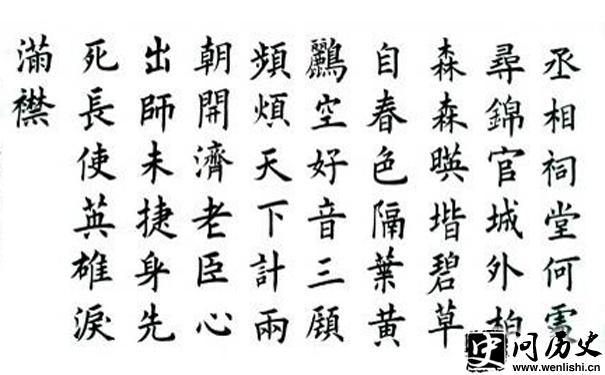 丞相祠堂何處
尋錦官城外柏
森森暎堦碧草
自春色隔葉黃
鸝空好音三顧
頻煩天下計兩
朝開濟老臣心
出師未捷身先
死長使英雄淚
滿襟
史 问历史
www.wenlishi.cn